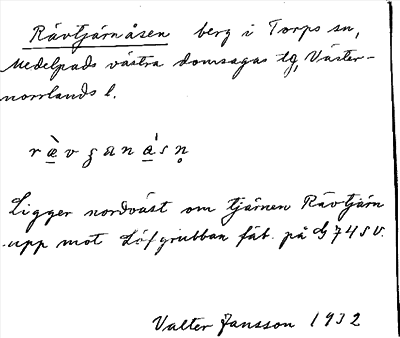 Rävtjärnåsen berg i Torps sn,
Medelpads västra domsagas tg, Väster-
norrlands l.
Ligger nordväst om tjärnen Rävtjärn
upp mot Löfgrubban fäb. på G 74 SV.
Valter Jansson 1932